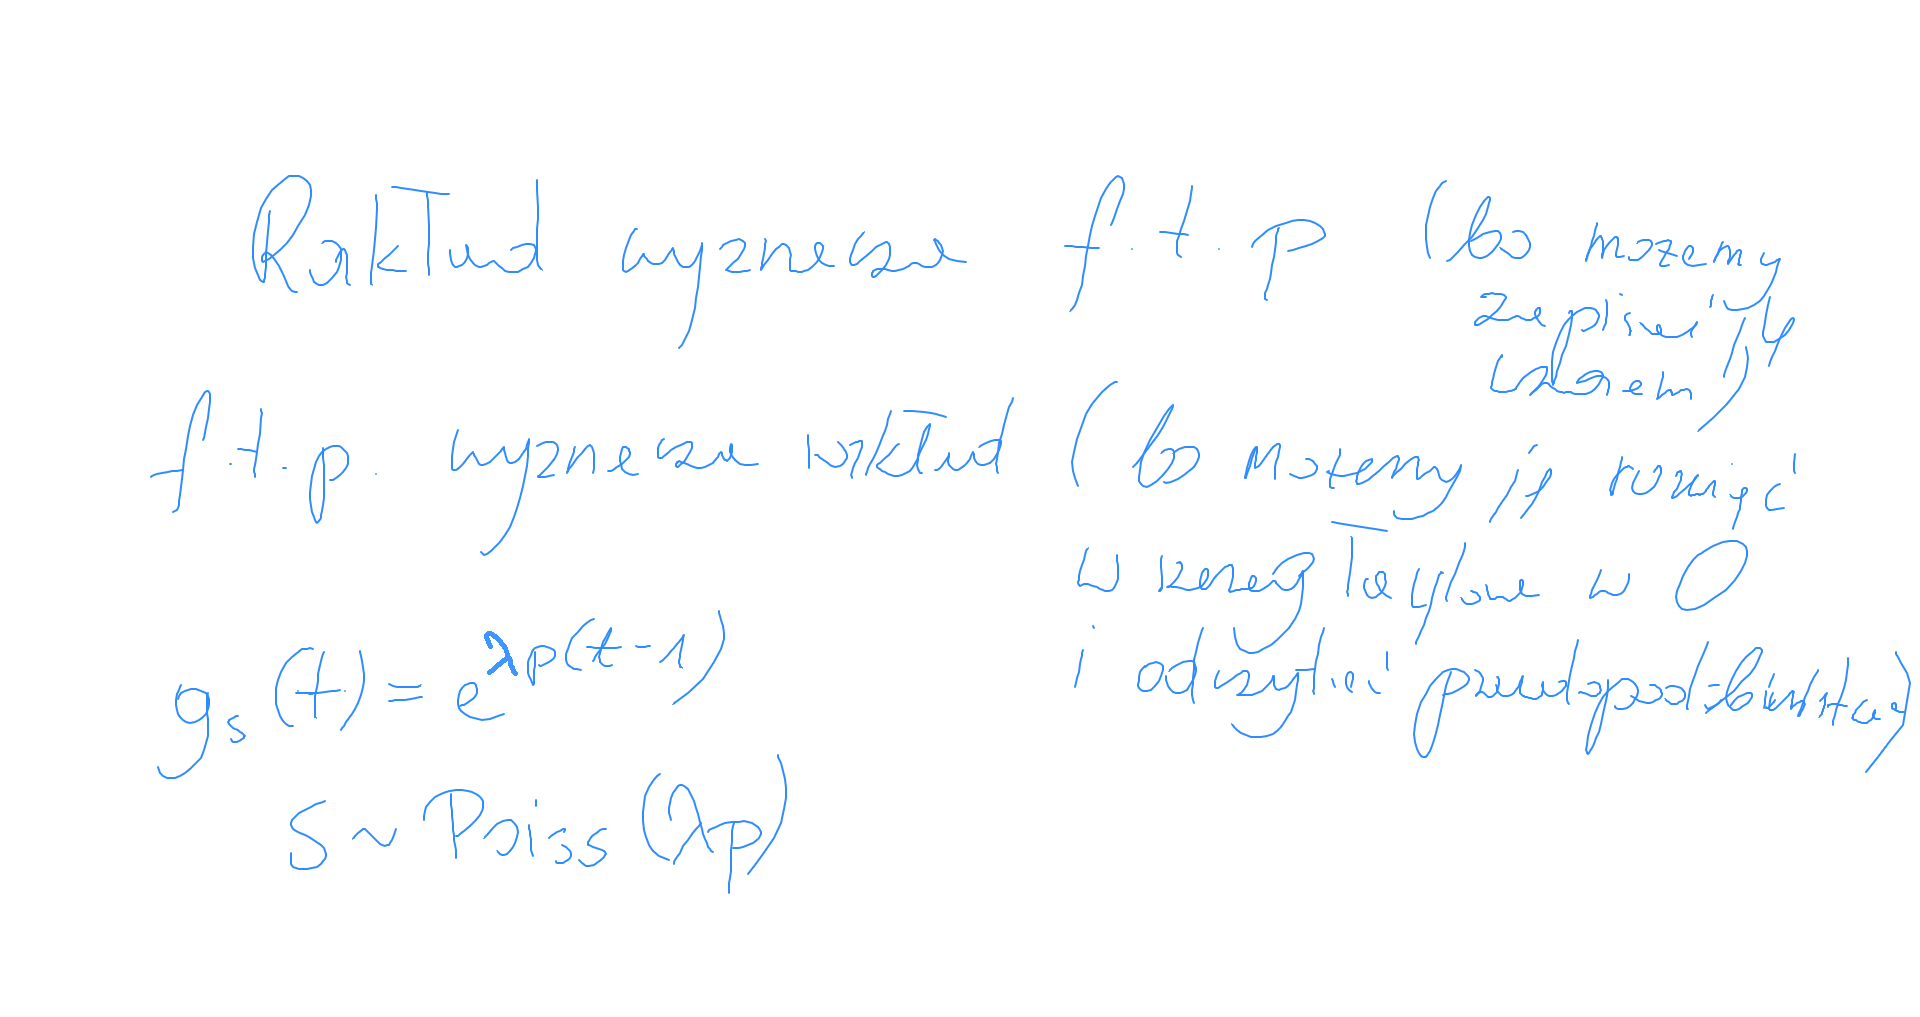 Rozkład wyznacza f.t.p (bo możemy
zapisać ją
wzorem)
f.t.p. wyznacza rozkład (bo możemy ją rozwinąć
w szereg Taylora w 0
i odczytać prawdopodobieństwa)
g_s(t) = e^{λp(t-1)}
S ~ Poiss(λp)